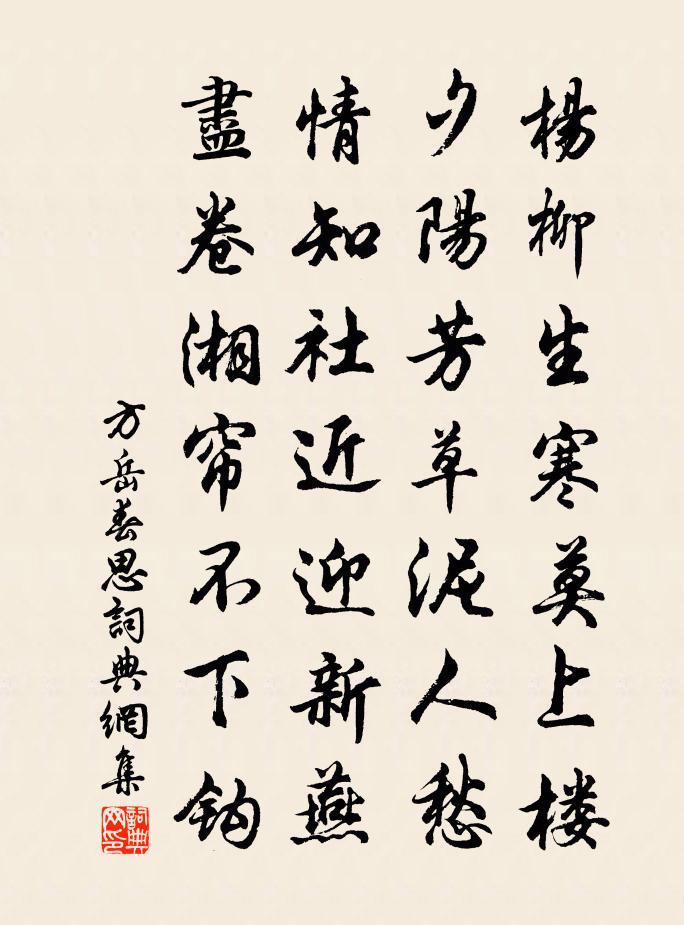 楊柳生寒莫上楼
夕陽芳草泥人愁
情知社近迎新燕
盡卷湘帘不下钩
方岳春思詞典網集
詞典网印